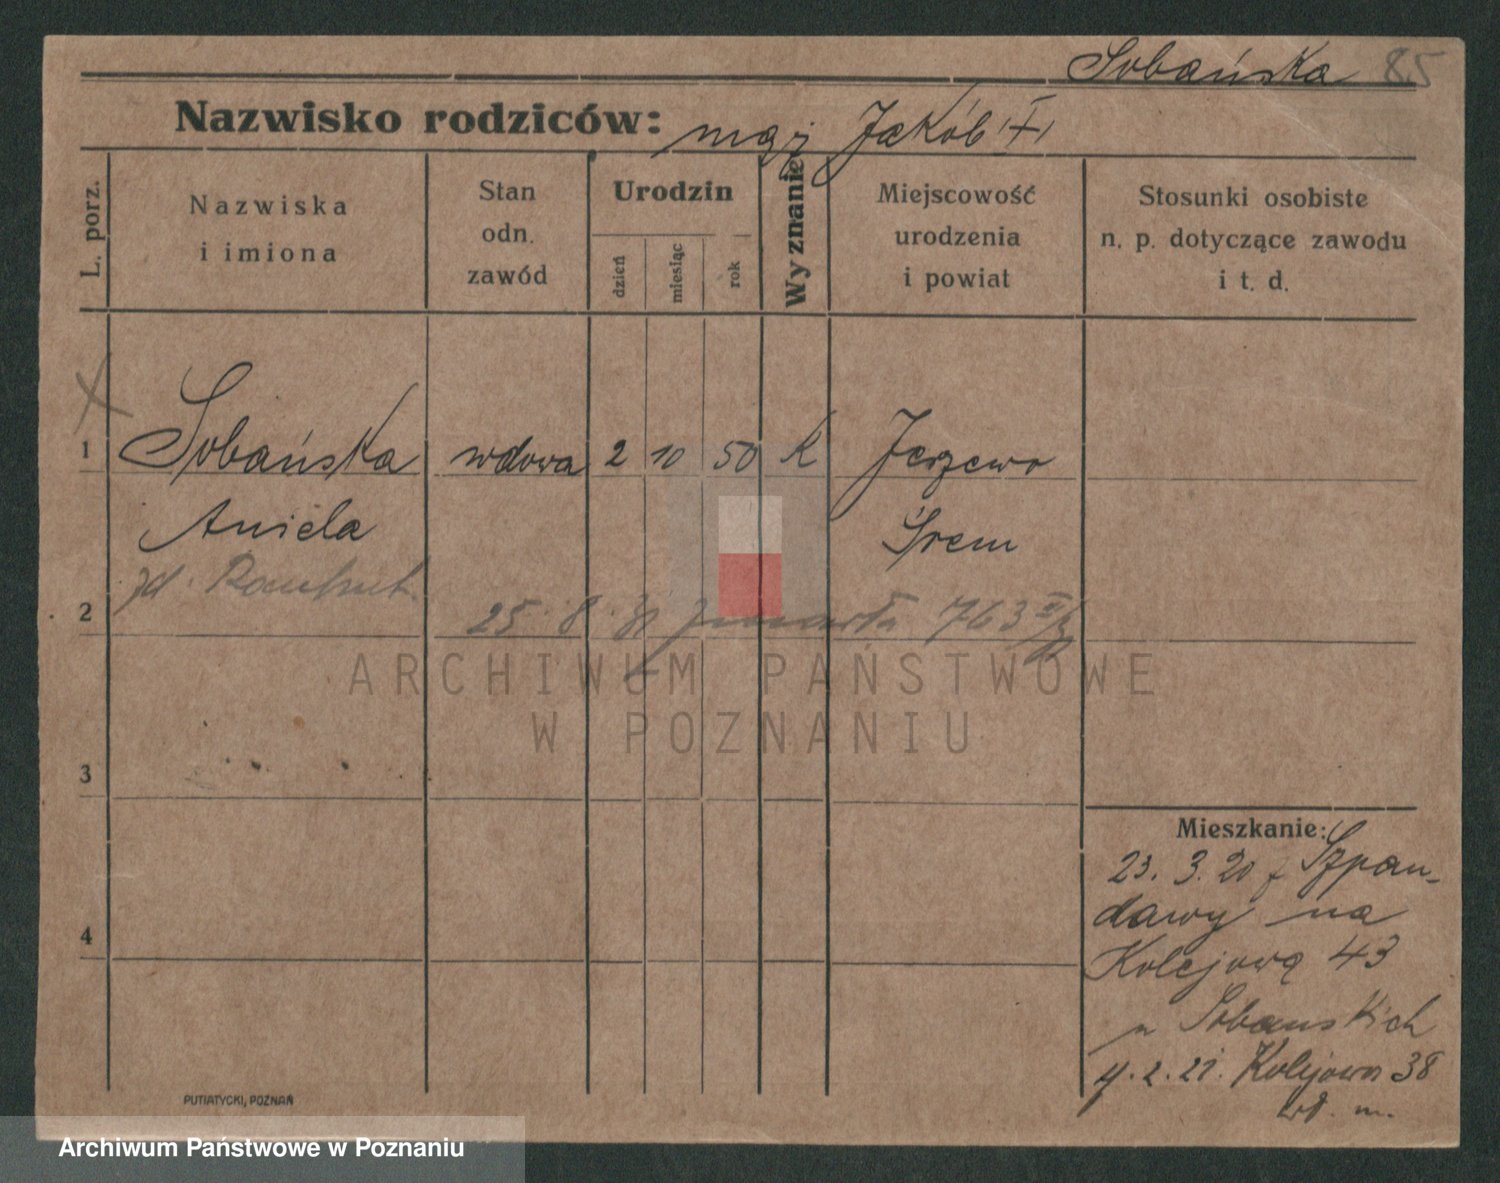 Sobańska 85
Nazwisko rodziców: mąż Jakób
L. porz.
Nazwiska
i imiona
Stan
odn.
zawód
Urodzin
dzień
miesiąc
rok
Wyznanie
Miejscowość
urodzenia
i powiat
Stosunki osobiste
n. p. dotyczące zawodu
i t. d.
1 Sobańska wdowa 2 10 50 K Jerzewo
Aniela Śrem
2 25. 8. 31 zmarła 763
3
4
Mieszkanie:
23. 3. 20 z Szpan-
dawy na
Kolejową 43
u Sobańskich
2. 21. Kolejowa 38
PUTIATYCKI, POZNAŃ
ARCHIWUM PAŃSTWOWE
W POZNANIU
Archiwum Państwowe w Poznaniu